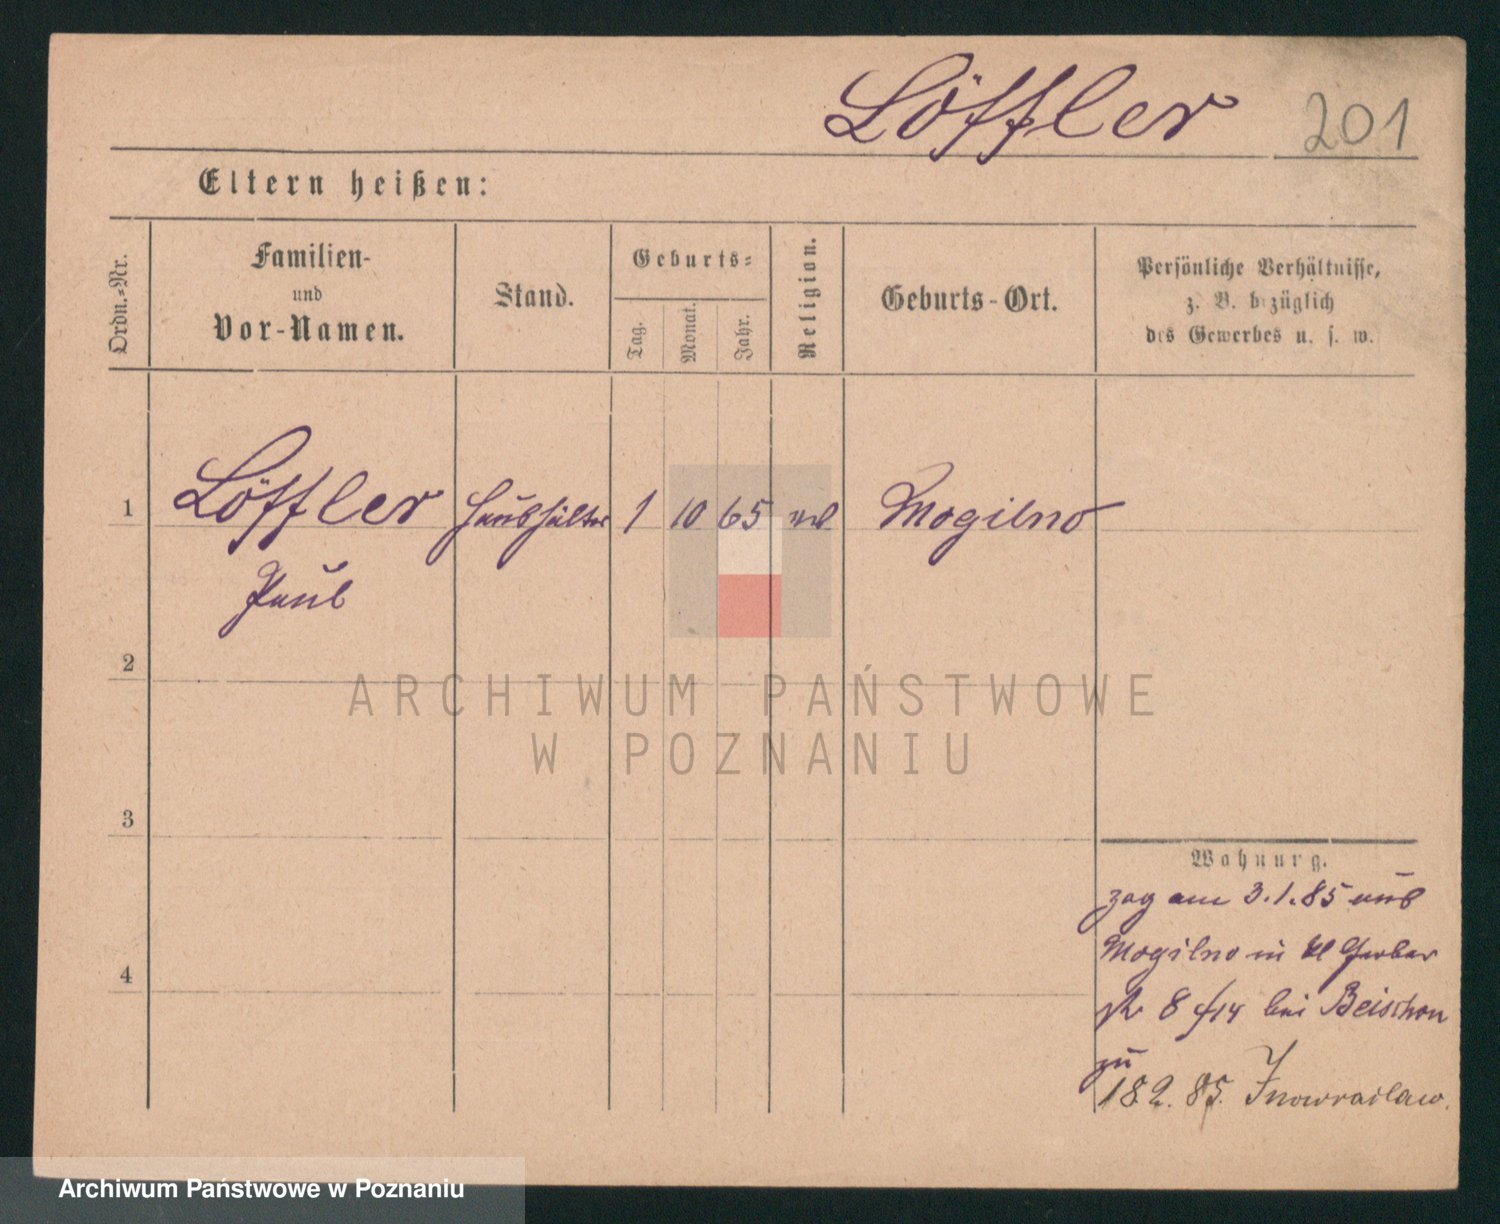 Löffler 201
Eltern heißen:
Ordn.-Nr.
Familien-
und
Vor-Namen.
Stand.
Geburts-
Tag.
Monat.
Jahr.
Religion.
Geburts-Ort.
Persönliche Verhältnisse,
z. B. bezüglich
des Gewerbes u. s. w.
1 Löffler Haushälter 1 10 65 Mogilno
Paul
2
3
4
ARCHIWUM PAŃSTWOWE
W POZNANIU
Wohnung.
zog am 3.1.85 aus
Mogilno in Kl Gerber
str 8 bei Beischon
zu
18.2.85. Inowrazlaw.
Archiwum Państwowe w Poznaniu